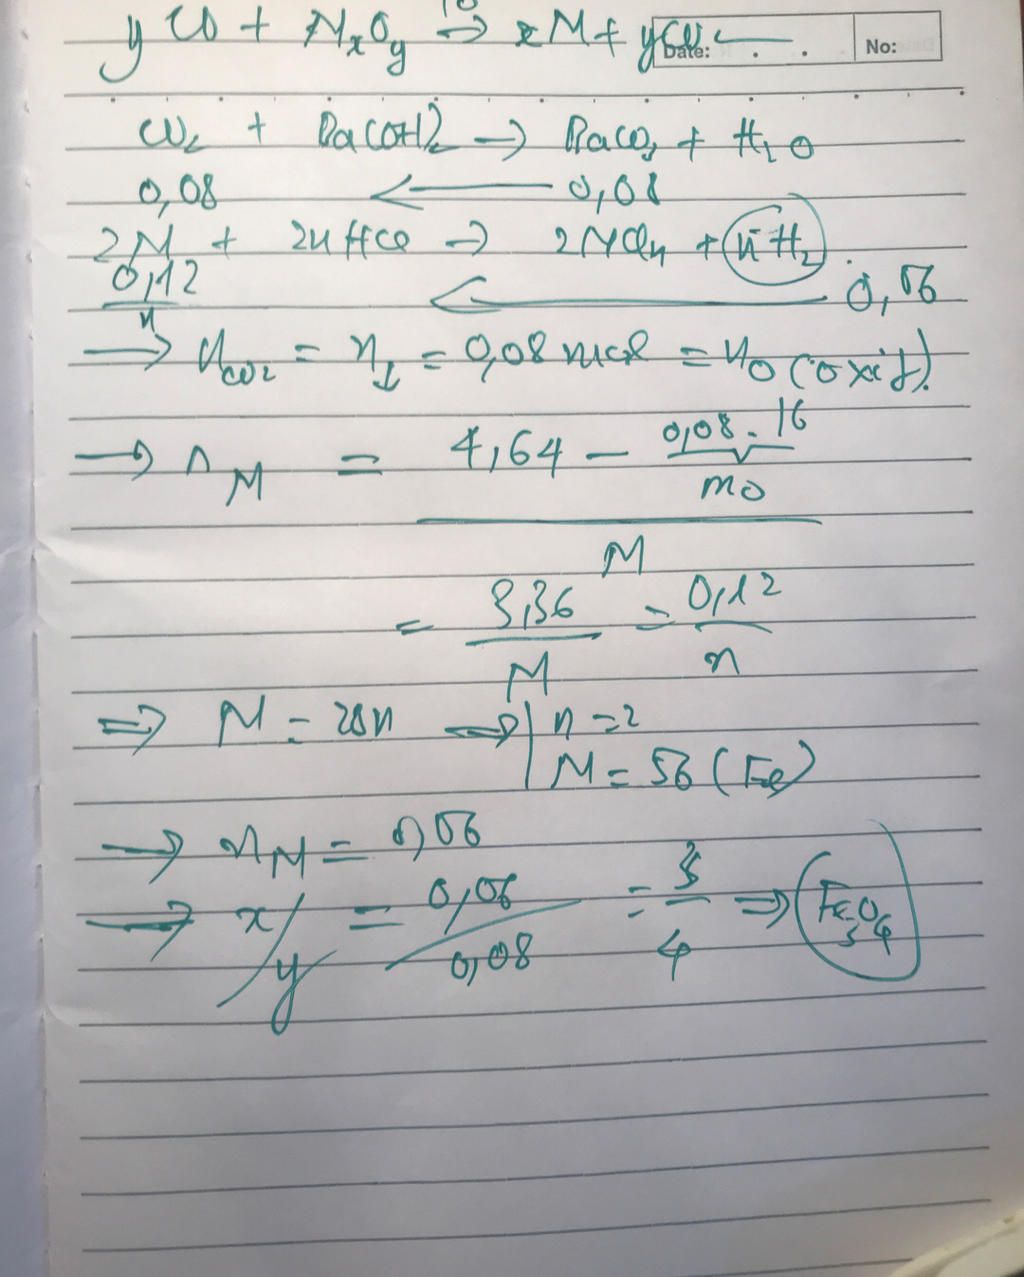 yCO + MxOy t° → xM + yCO2
Date: . . No:
CO2 + Ba(OH)2 → BaCO3 + H2O
0,08 ← 0,08
2M + 2nHCl → 2MCln + nH2
0,12/n ← 0,06
→ nCO2 = n↓ = 0,08 mol = nO (oxit).
→ nM = (4,64 - 0,08.16)/M
mO
= 3,36/M = 0,12/n
⇒ M = 28n ⇒ | n = 2
M = 56 (Fe)
→ nM = 0,06
→ x/y = 0,06/0,08 = 3/4 ⇒ Fe3O4